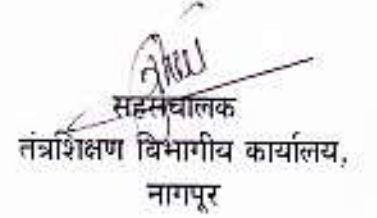 सहसंचालक
तंत्रशिक्षण विभागीय कार्यालय,
नागपूर